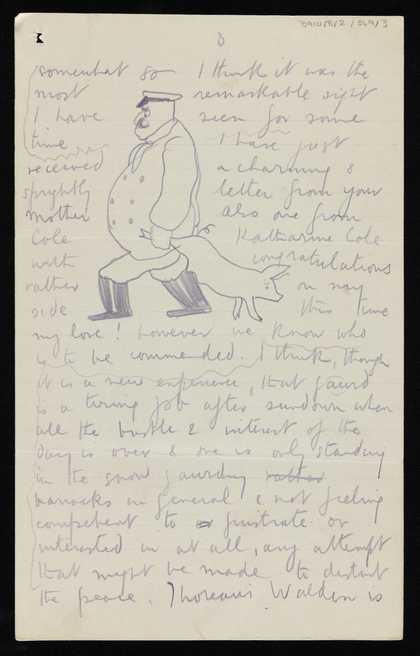 8
somewhat so I think it was the
most remarkable sight
I have seen for some
time I have just
received a charming &
sprightly letter from your
mother also one from
Cole Katharine Cole
with congratulations
rather on my
side this time
my love! however we know who
is to be commended. I think, though
it is a new experience, that guard
is a tiring job after sundown when
all the bustle & interest of the
day is over & one is only standing
in the snow guarding rather
barracks in general & not feeling
competent to frustrate or
interested in at all, any attempt
that might be made to disturb
the peace. Thoreau's Walden is